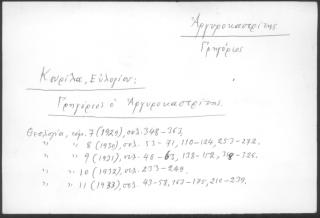 Ἀργυροκαστρίτης
Γρηγόριος
Κουρίλα, Εὐλογίου:
Γρηγόριος ὁ Ἀργυροκαστρίτης.
Θεολογία, τόμ. 7 (1929), σελ. 348-363,
" " 8 (1930), σελ. 53-71, 110-124, 253-272,
" " 9 (1931), σελ. 48-63, 138-152, 318-326.
" " 10 (1932), σελ. 233-249.
" " 11 (1933), σελ. 43-58, 163-175, 210-239.